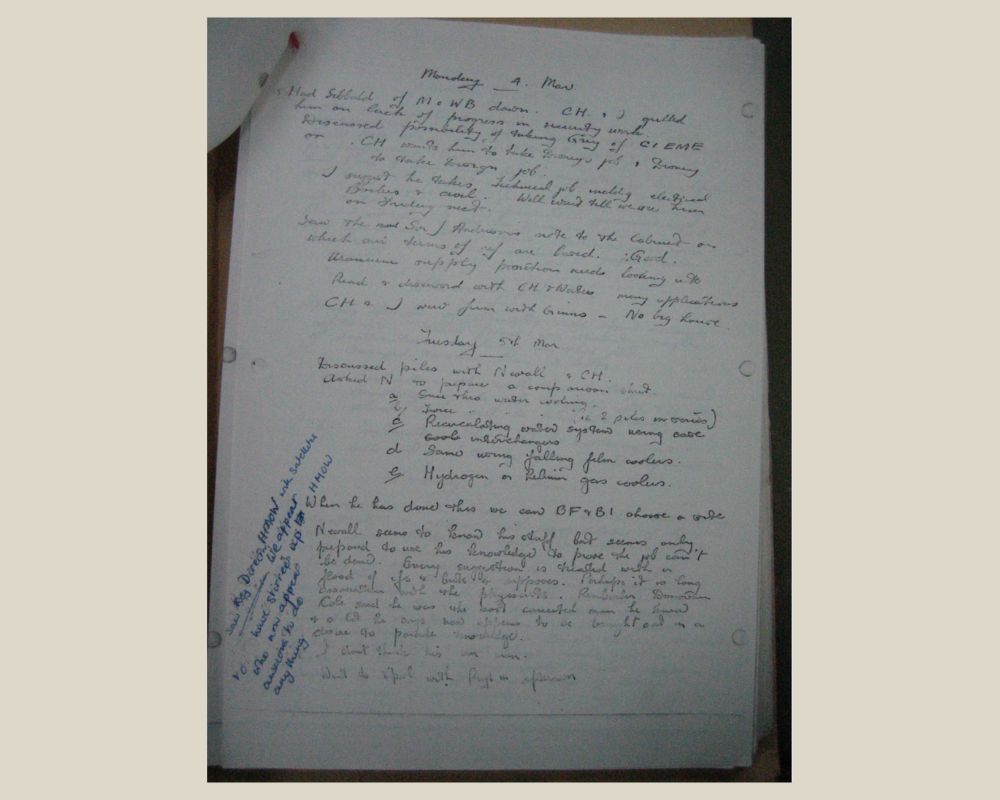 Monday 4. Mar
Had Sibbald of MoWB down. CH & I grilled
him on lack of progress in security work.
Discussed possibility of taking Guy of CIEME
on. CH wants him to take Disney's job & Disney
to take job.
I suggest he takes Technical job melding electrical
& civil. Will tell
on Friday next.
Saw the Sir J Anderson's note to the Cabinet on
which our terms of ref are based. Good.
Uranium supply position needs looking into
Read & discussed with CH & many applications
CH & I with Ginns - No big house.
Tuesday 5th Mar
Discussed piles with Newall & CH.
Asked N to prepare a comparison
a Once thro water cooling.
b Twice (ie 2 piles in series)
c Recirculating water system using
interchangers
d Same using falling film coolers.
e Hydrogen or helium gas coolers.
When he has done this we can BF & BI choose a
Newall seems to know his stuff but seems only
prepared to use his knowledge to prove the job can't
be done. Every suggestion is treated with a
flood of ifs & buts & supposes. Perhaps it is long
association with the physicists. Remember
Cole said he was the most conceited man he knew
& a lot he says now appears to be brought out in a
desire to parade knowledge.
I dont think his our man.
Went to L'pool with in afternoon
Saw Reg HMOW
& O. We appear
to have stirred up HMOW
who now appear
anxious to do
anything